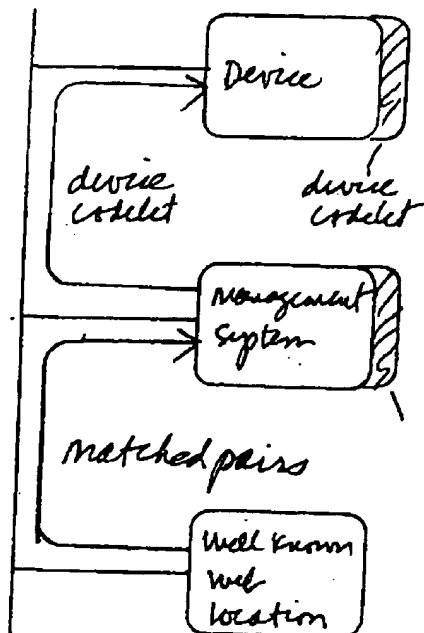 Device
device
codelet
device
codelet
Management
System
Matched pairs
Well Known
Web
location